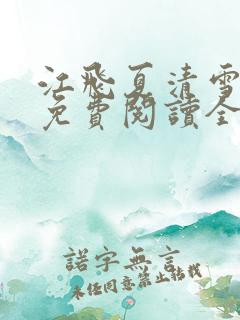 江飛夏清雪
免費閱讀全
諾字無言
未經同意禁止轉載